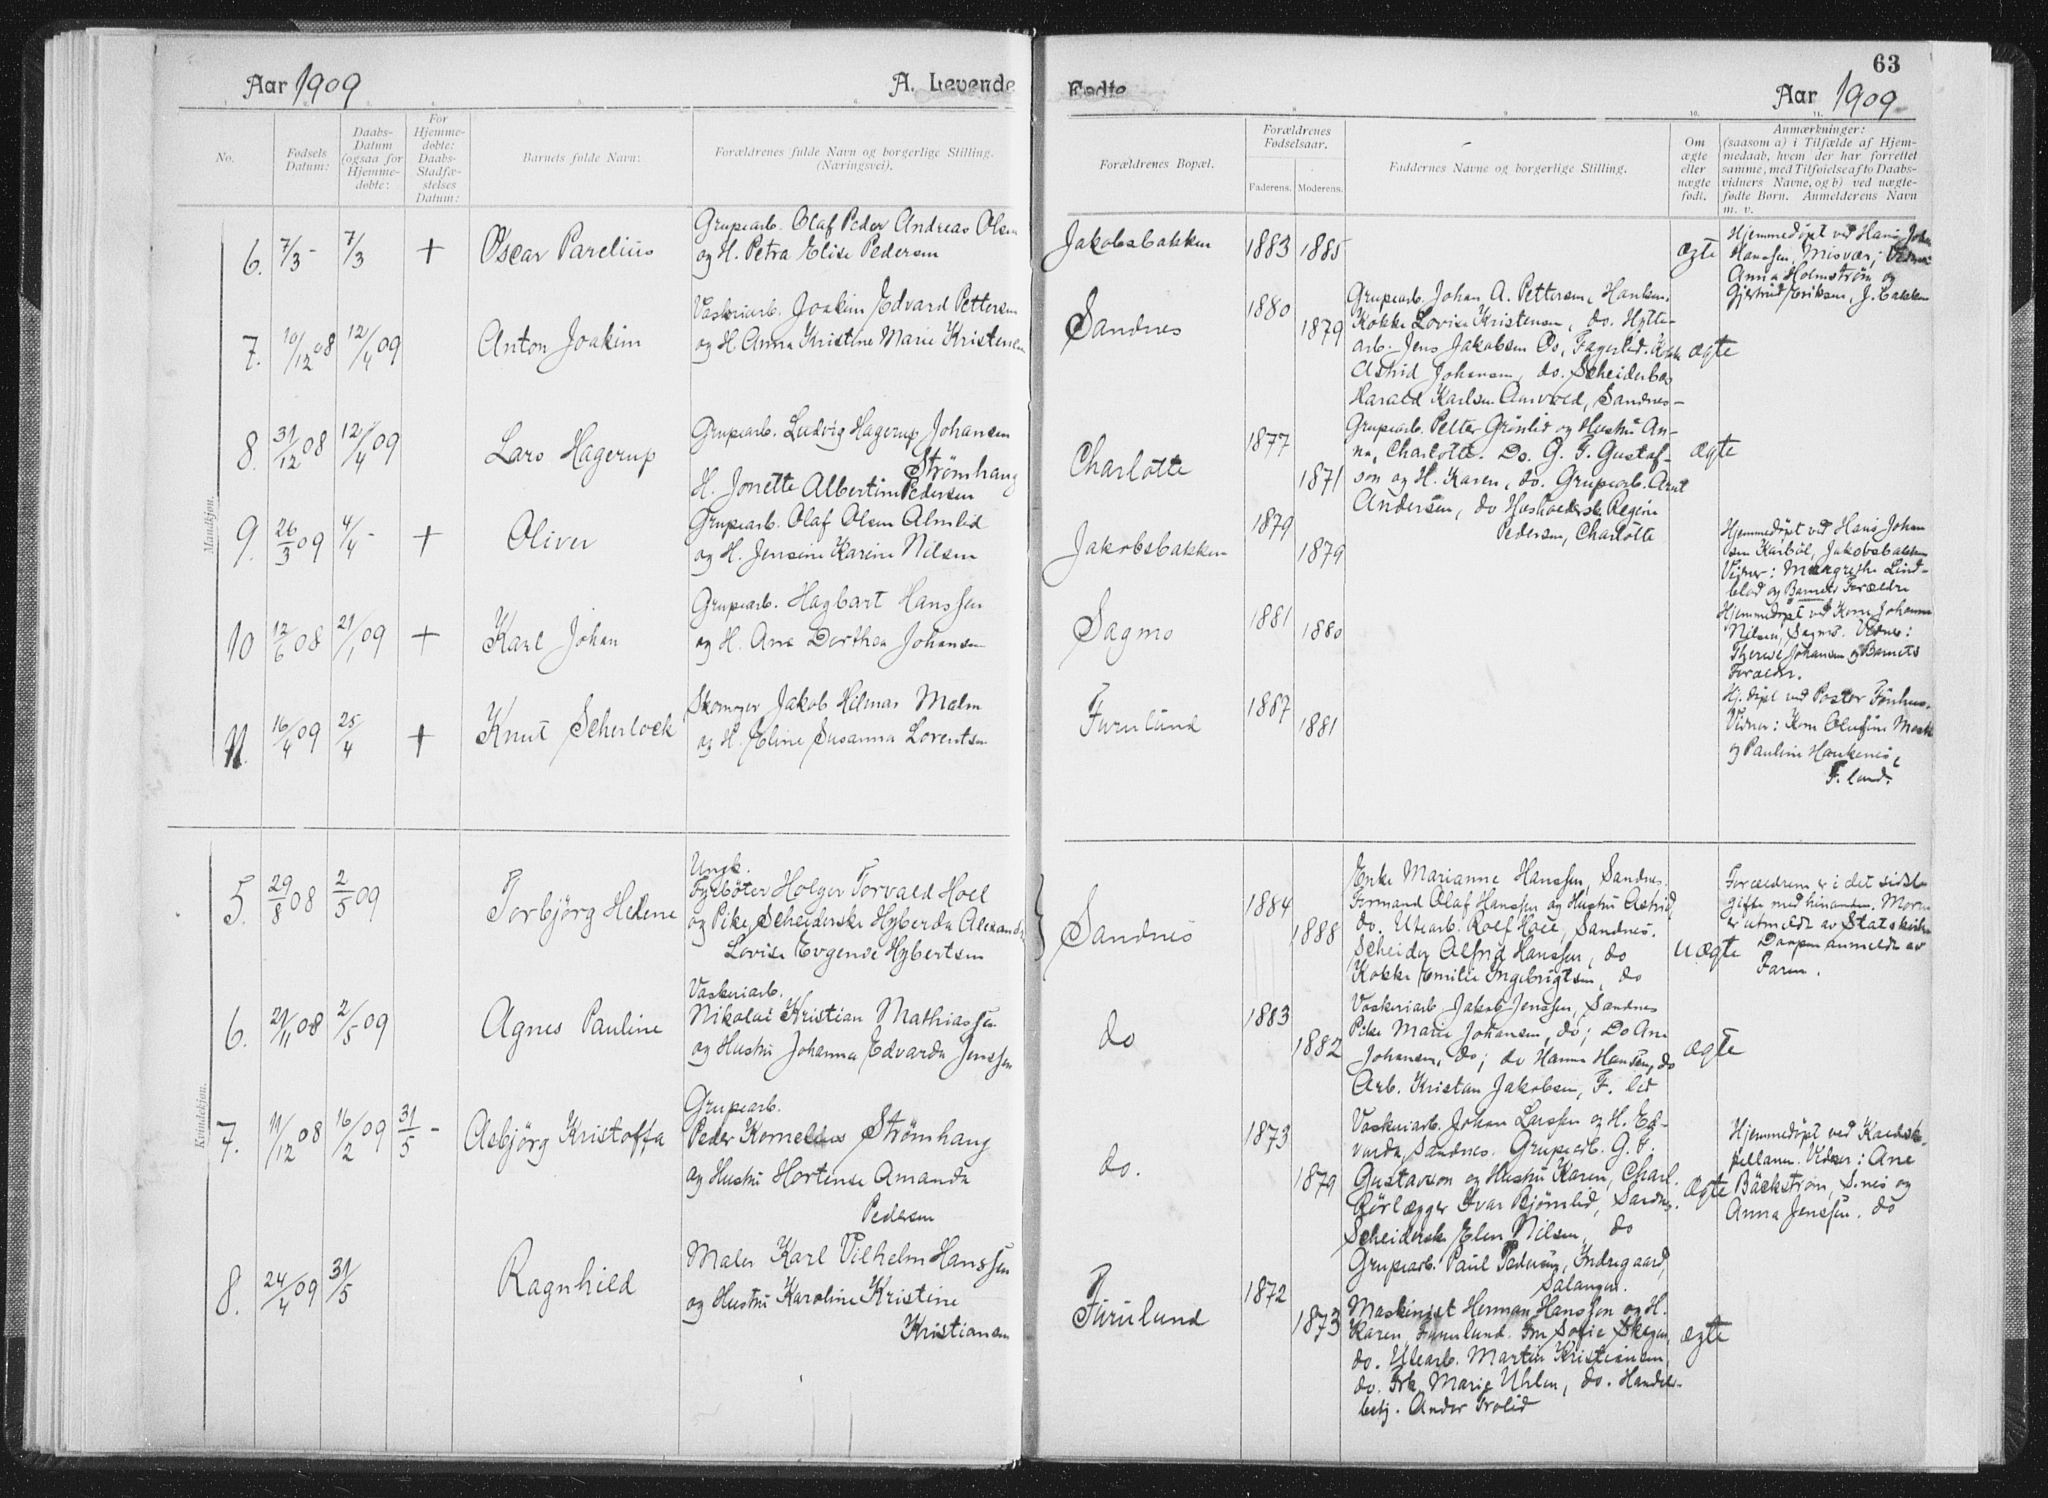 Aar 1909
A. Levende
Fødte
63
Aar 1909
1. 2. 3. 4. 5. 6. 7. 8. 9. 10. 11.
No.
Fødsels
Datum:
Daabs-
Datum
(ogsaa for
Hjemme-
døbte:
For
Hjemme-
døbte:
Daabs-
Stadfæ-
stelses
Datum:
Barnets fulde Navn:
Forældrenes fulde Navn og borgerlige Stilling.
(Næringsvei).
Forældrenes Bopæl.
Forældrenes
Fødselsaar.
Faderens.
Moderens.
Faddernes Navne og borgerlige Stilling.
Om
ægte
eller
uægte
født.
Anmærkninger:
(saasom a) i Tilfælde af Hjem-
medaab, hvem der har forrettet
samme, med Tilføielse af to Daabs-
vidners Navne, og b) ved uægte-
fødte Børn. Anmelderens Navn
m. v.
Mandkjøn.
6. 7/3 - 7/3 + Oscar Parelius
Grubearb. Olaf Peder Andreas Olsen
og H. Petra Elise Pedersen
Jakobsbakken 1883 1885 ægte
Hjemmedøpt ved Hans Johan
Hanssen, Misvær; Vidner
Anna Holmstrøm og
Gjertrud Eriksen, J. bakken
7. 10/12 08 12/4 09 Anton Joakim
Vaskeriarb. Joakim Edvard Pettersen
og H. Anna Kristine Marie Kristensen
Sandnes 1880 1879 ægte
Grubearb. Johan A. Pettersen, Hanken.
Kokke Lovise Kristensen, do. Hytte-
arb. Jens Jakobsen Os, Fagerlid. Kokke
Astrid Johansen, do. Scheiderbas
Harald Karlsen Aarvold, Sandnes -
8. 31/12 08 12/4 09 Lars Hagerup
Grubearb. Ludvig Hagerup Johansen
Strømhaug
H. Jonette Albertine Pedersen
Charlotte 1877 1871 ægte
Grubearb. Petter Grønlid og Hustru An-
na, Charlotte. Do. G. F. Gustaf-
son og H. Karen, do. Grubearb. Arnt
Andersen, do Husholderske Regine
Pedersen, Charlotte
9. 26/3 09 4/4 - + Oliver
Grubearb. Olaf Olsen Almlid
og H. Jensine Karine Nilsen
Jakobsbakken 1879 1879
Hjemmedøpt ved Hans Johan
sen Karbøl, Jakobsbakken
Vidner: Margrethe Lind-
blad og Barnets Forældre
10 12/6 08 21/1 09 + Karl Johan
Grubearb. Hagbart Hanssen
og H. Ane Dorthea Johansen
Sagmo 1881 1880
Hjemmedøpt ved Kone Johanna
Nilsen, Sagmo. Vidner:
Therese Johansen og Barnets
Forældre.
11. 16/4 09 25/4 + Knut Scherlock
Skomager Jakob Hilmar Malm
og H. Eline Susanna Lorentsen
Furulund 1887 1881
Hj. døpt ved Pastor Fønhus.
Vidner: Kone Olufine Moske
og Pauline Haukenes,
F. lund.
Kvindekjøn.
5. 29/8 08 2/5 09 Torbjørg Helene
Ungk.
Fyrbøter Holger Torvald Hoel
og Pike, Scheiderske Hyberda Alexandra
Lovise Evgenie Hybertsen
Sandnes 1884 1888 uægte
Enke Marianne Hanssen, Sandnes.
Formand Olaf Hanssen og Hustru Astrid,
do. Utearb. Rolf Hoel, Sandnes.
Scheider Alfrid Hanssen, do
Kokke Emilie Ingebrigtsen, do
Forældrene er i det sidste
gifte med hinanden. Moren
er utmeldt av Statskirken
Daapen anmeldt av
Faren.
6. 21/11 08 2/5 09 Agnes Pauline
Vaskeriarb.
Nikolai Kristian Mathiassen
og Hustru Johanna Edvarda Jenssen
do 1883 1882 ægte
Vaskeriarb. Jakob Jenssen, Sandnes
Pike Marie Johansen, do; Do Ane
Johansen, do; do Hanna Hansen, do
Arb. Kristian Jakobsen, F. lid
7. 11/12 08 16/2 09 31/5 - Asbjørg Kristoffa
Grubearb.
Peder Kornelius Strømhaug
og Hustru Hortense Amanda
Pedersen
do. 1873 1879 ægte
Vaskeriarb. Johan Larssen og H. Ed-
varda, Sandnes. Grubearb. G. F.
Gustavson og Hustru Karen, Charl.
Rørlægger Ivar Bjørnlid, Sandnes.
Scheiderske Elen Nilsen, do
Grubearb. Paul Pedersen, Indregaard,
Salangen.
Hjemmedøpt ved Kaldska-
pellanen. Vidner: Ane
Bäckstrøm, S.nes og
Anna Jenssen. do
8. 24/4 09 31/5 Ragnhild
Maler Karl Vilhelm Hanssen
og Hustru Karoline Kristine
Kristiansen
Furulund 1872 1873 ægte
Maskinist Herman Hanssen og H.
Karen, Furulund. Frk Sofie Skogen,
do. Utearb. Martin Kristiansen,
do. Frk. Marie Uhlen, do. Handels-
bestj. Ander Trolid